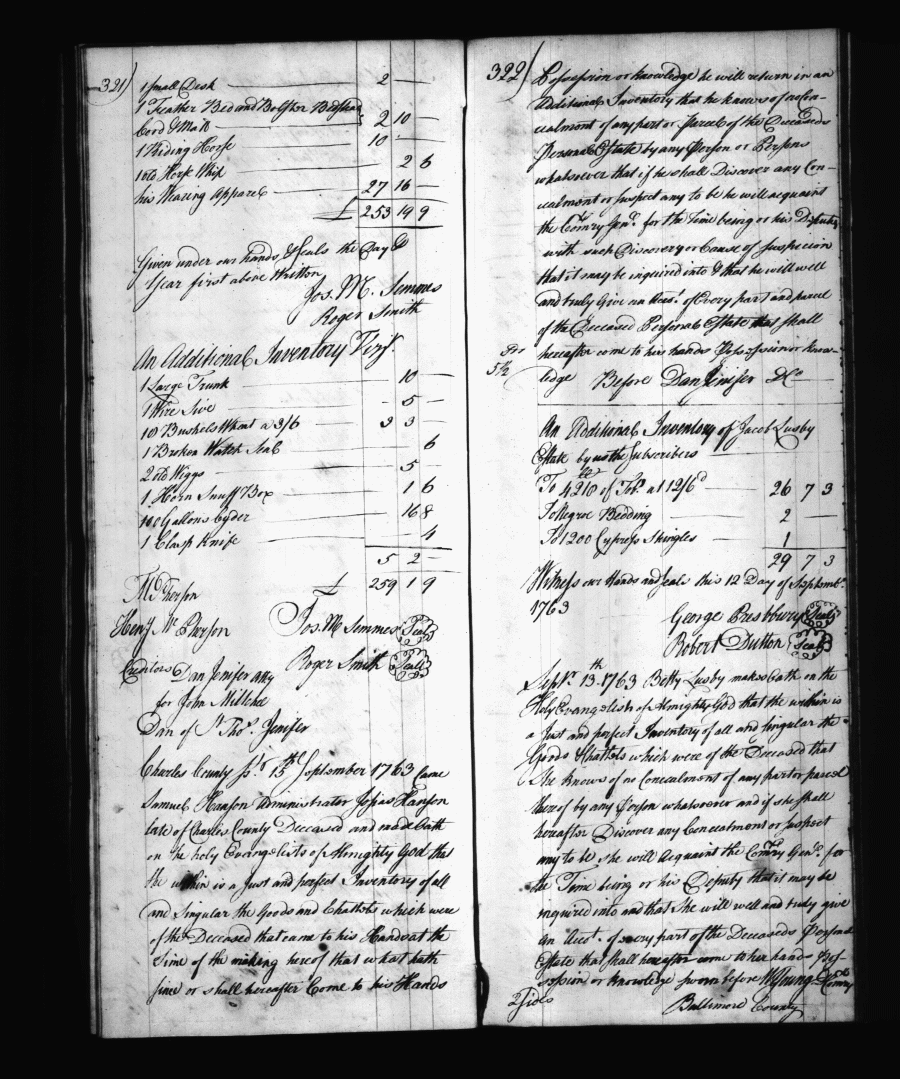 321)
1 Small Desk 2 —
1 Feather Bed and Bolster Bedstead
Cord & Matt 2 10 —
1 Riding Horse 10 —
1 old Horse Whip 2 6
his Wearing Apparel 27 16 —
£ 253 19 9
Given under our hands & Seals the Day &
Year first above Written
Jos. M. Semmes
Roger Smith
An Additional Inventory Vizt.
1 Large Trunk 10 —
1 Wire Sive 5 —
18 Bushels Wheat a 3/6 3 3 —
1 Broken Watch Seal 6
2 old Wiggs 5 —
1 Horn Snuff Box 1 6
100 Gallons Cyder 16 8
1 Clasp Knife 4
5 2 —
£ 259 1 9
McPherson
Henry Mc Pherson Jos. M Semmes Seal
Creditors Dan Jenifer atty Roger Smith Seal
for John
Dan of St Thos. Jenifer
Charles County Sst. 15th September 1763 Came
Samuel Hanson Administrator Josias Hanson
late of Charles County Deceased and made Oath
on the holy Evangelists of Almighty God that
the within is a Just and perfect Inventory of all
and Singular the Goods and Chattels which were
of the Deceased that came to his Hands at the
time of the making hereof that what hath
since or shall hereafter Come to his Hands
322)
Possession or knowledge he will return in an
Additional Inventory that he knows of no Con-
cealment of any part or Parcel of the Deceaseds
Personal Estate by any Person or Persons
whatsoever that if he shall Discover any Con-
cealment or suspect any to be he will acquaint
the Comry Genl. for the Time being or his Deputy
with such Discovery or Cause of Suspicion
that it may be inquired into & that he will well
and truly Give an Acct. of Every part and parcel
of the Deceased Personal Estate that shall
hereafter come to his hands Possession or know-
5½
ledge Before Dan Jenifer &c
An Additional Inventory of Jacob Lusby
Estate by us the Subscribers
To 4218 lb of Tobo. at 12/6 26 7 3
To Negroe Bedding 2 —
To 1200 Cypress Shingles 1
29 7 3
Witness our Hands and Seals this 12 Day of Septembr.
1763
George Presbbury Seal
Robert Dutton Seal
Septr. 13th. 1763 Betty Lusby makes Oath on the
Holy Evangelists of Almighty God that the within is
a Just and perfect Inventory of all and Singular the
Goods & Chattels which were of the Deceased that
She knows of no Concealment of any part or parcel
thereof by any Person whatsoever and if she shall
hereafter Discover any Concealment or suspect
any to be she will Acquaint the Comry Genl. for
the Time being or his Deputy that it may be
inquired into and that She will well and truly give
an Acct. of every part of the Deceaseds Personal
Estate that shall hereafter come to her hands Pos-
session or knowledge Sworn before W Young Comry
2 Sides
Baltimore County